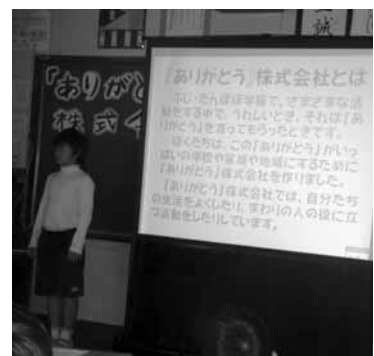 誠
『ありが
株式
『ありがとう』株式会社とは
ふじ・たんぽぽ学級で、さまざまな活
動をする中で、うれしいとき、それは『あ
りがとう』を言ってもらったときです。
ぼくたちは、この『ありがとう』がいっ
ぱいの学校や家庭や地域にするために
『ありがとう』株式会社を作りました。
『ありがとう』株式会社では、自分たち
の生活をよくしたり、まわりの人の役に立
つ活動をしたりしています。